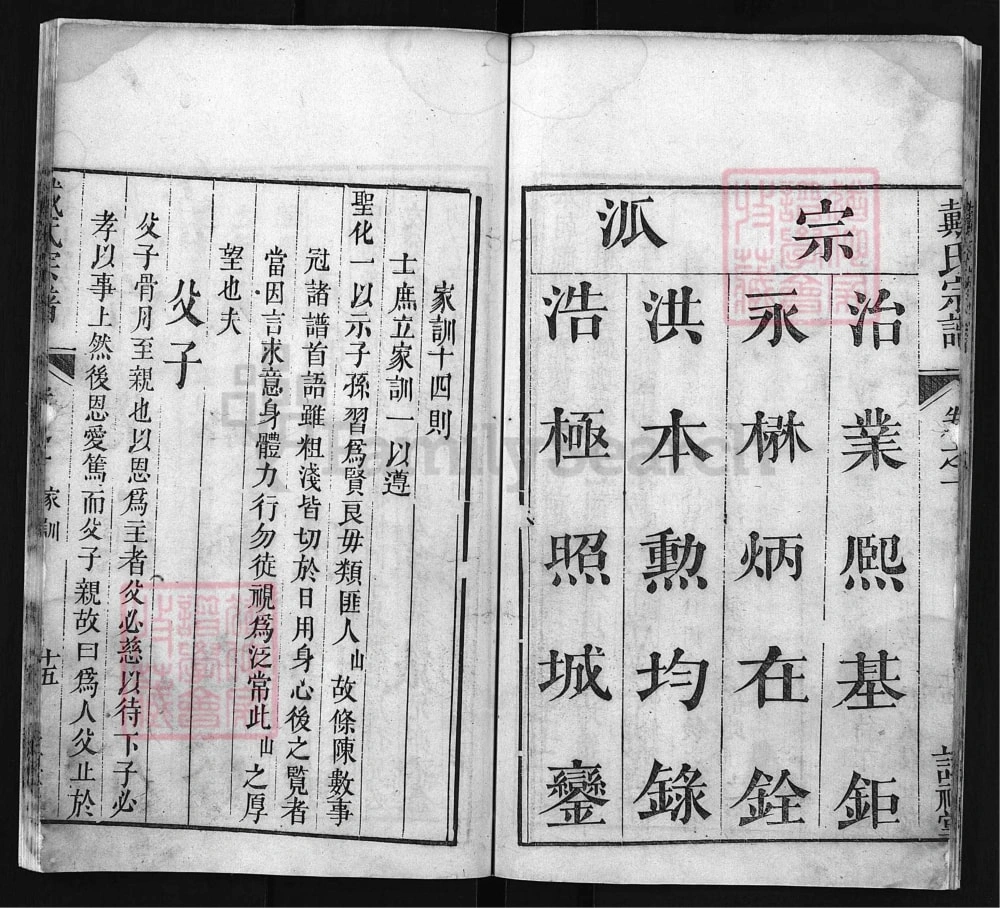 戴氏宗譜
卷之一
宗派
治業熙基鉅
永楙炳在銓
洪本勲均錄
浩極照城鑾
家訓十四則
士庶立家訓一以遵
聖化一以示子孫習為賢良毋類匪人山故條陳數事
冠諸譜首語雖粗淺皆切於日用身心後之覽者
當因言求意身體力行勿徒視為泛常此山之厚
望也夫
父子
父子骨月至親也以恩為主者父必慈以待下子必
孝以事上然後恩愛篤而父子親故曰為人父止於
家訓
十五
FamilySearch